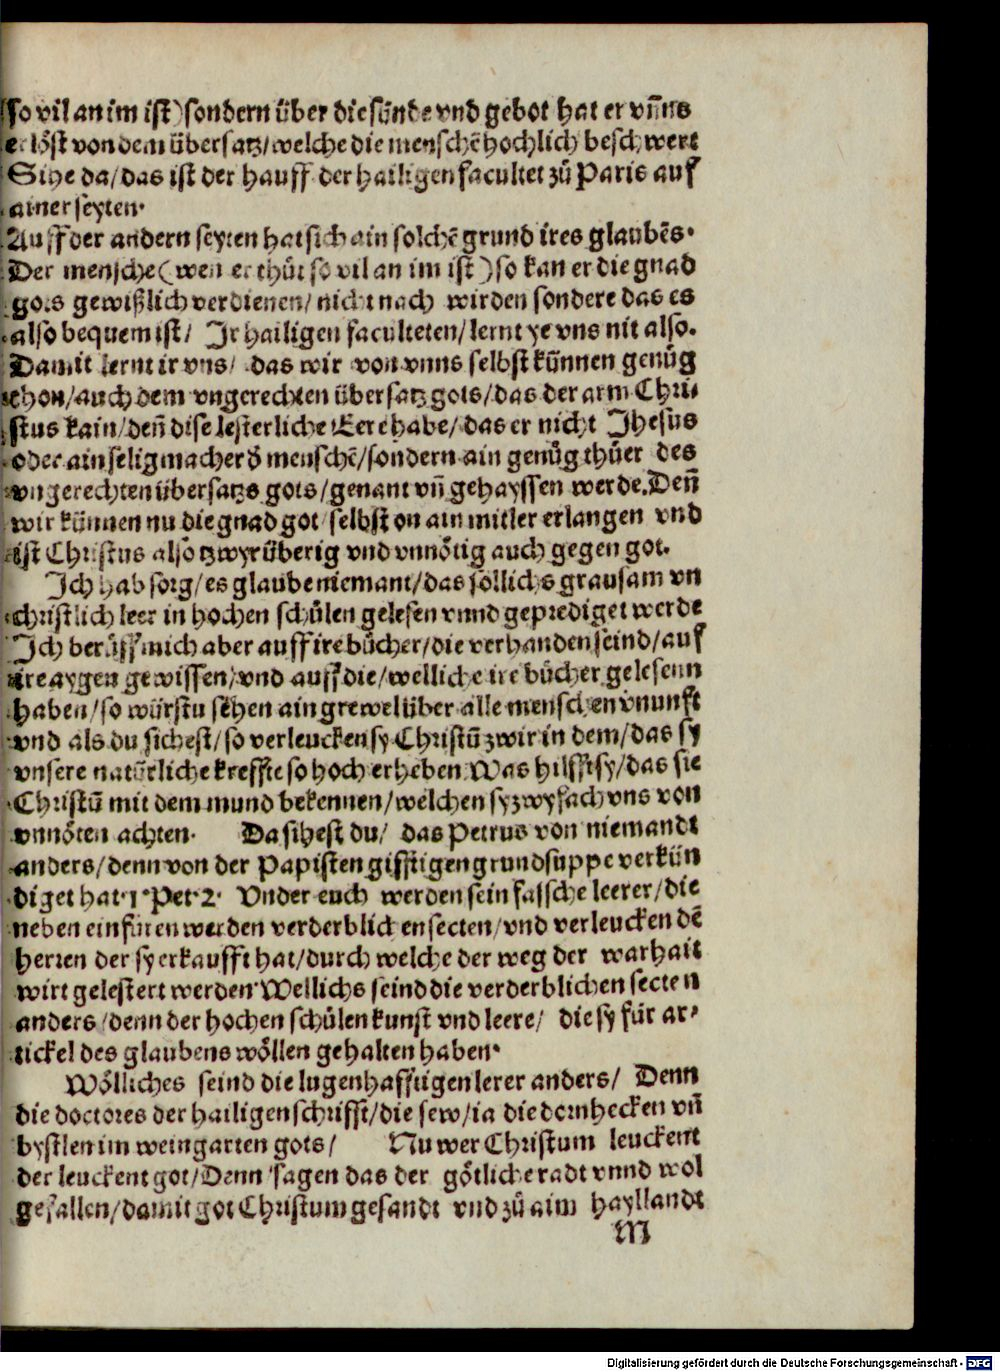 so vil an im ist) sondern über die sünde vnd gebot hat er vn̄ns
erlöst von dem übersatz/welche die menschē hochlich beschwert
Sihe da/das ist der hauff der hailigen facultet zů Paris auf
ainer seyten.
Auff der andern seyten hat sich ain solchē grund ires glaubēs.
Der mensche (wen er thůt so vil an im ist) so kan er die gnad
gots gewißlich verdienen/nicht nach wirden sondere das es
also bequem ist/ Ir hailigen faculteten/lernt ye vns nit also.
Damit lernt ir vns/ das wir von vnns selbst künnen genůg
thon/auch dem vngerechten übersatz gots/das der arm Chri-
stus kain/deñ dise lesterliche Eere habe/das er nicht Jhesus
oder ain seligmacher d̄ menschē/sondern ain genůgthůer des
vngerechten übersatzs gots/genant vn̄ gehayssen werde. Deñ
wir künnen nu die gnad got selbst on ain mitler erlangen vnd
ist Christus also tzwyr überig vnd vnnötig auch gegen got.
Ich hab sorg/es glaube niemant/das sollichs grausam vn
christlich leer in hochen schůlen gelesen vnnd geprediget werde
Ich berůff mich aber auff ire bücher/die verhanden seind/auf
ire aygen gewissen/vnd auff die/welliche ire bücher gelesenn
haben/so würstu sehen ain grewel über alle menschen vnunft
vnd als du sichest/so verleucken sy Christū zwir in dem/das sy
vnsere natürliche kreffte so hoch erheben Was hilfft sy/das sie
Christū mit dem mund bekennen/welchen sy zwyfach vns von
vnnöten achten. Da sihest du/ das Petrus von niemandt
anders/denn von der Papisten gifftigen grundsuppe verkün
diget hat. 1. Pet. 2. Vnder euch werden sein falsche leerer/die
neben einfüren werden verderblichen secten/vnd verleucken dē
herren der sy erkaufft hat/durch welche der weg der warhait
wirt gelestert werden. Wellichs seind die verderblichen secten
anders/denn der hochen schůlen kunst vnd leere/ die sy für ar-
tickel des glaubens wöllen gehalten haben.
Wölliches seind die lugenhafftigen lerer anders/ Denn
die doctores der hailigen schrifft/die sew/ia die dornhecken vn̄
dystlen im weingarten gots/ Nu wer Christum leuckent
der leuckent got/Denn sagen das der götliche radt vnnd wol
gefallen/damit got Christum gesandt vnd zů aim hayllandt
M
Digitalisierung gefördert durch die Deutsche Forschungsgemeinschaft - DFG